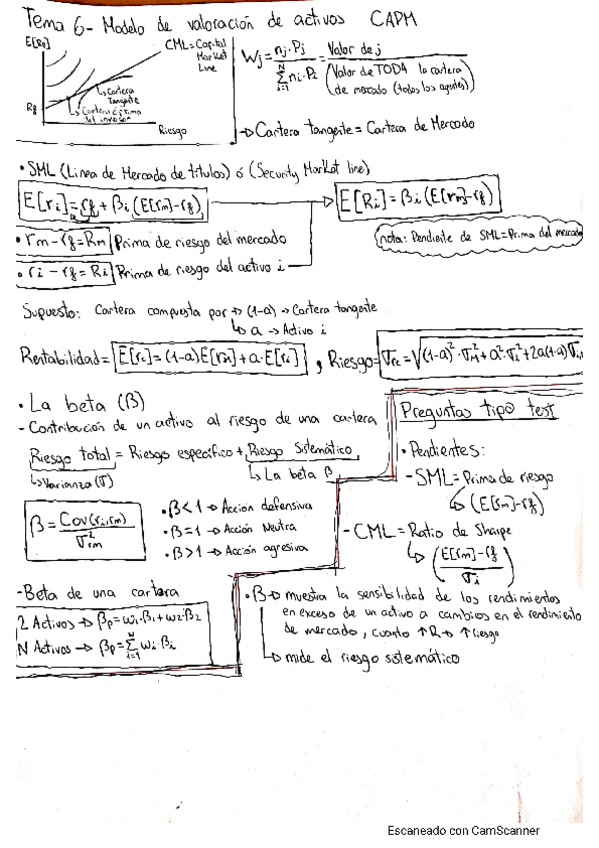 Tema 6- Modelo de valoración de activos CAPM
E[Rc]
CML = Capital
Market
Line
Cartera
Tangente
Cartera óptima
del inversor
Rf
Riesgo
Wj = nj·Pj / Σ(i=1, N) ni·Pi = Valor de j / (Valor de TODA la cartera
de mercado (todos los agentes))
→ Cartera tangente = Cartera de Mercado
• SML (Linea de Mercado de títulos) ó (Security Market line)
E[ri] = rf + βi (E[rm]-rf)
E[Ri] = βi (E[rm]-rf)
• rm - rf = Rm | Prima de riesgo del mercado
nota: Pendiente de SML = Prima del mercado
• ri - rf = Ri | Prima de riesgo del activo i
Supuesto: Cartera compuesta por → (1-a) → Cartera tangente
↳ a → Activo i
Rentabilidad = E[rc] = (1-a)E[rm] + a·E[ri] , Riesgo = σrc = √(1-a)²·σ²m + a²·σ²i + 2a(1-a)σi,
• La beta (β)
- Contribución de un activo al riesgo de una cartera
Riesgo total = Riesgo específico + Riesgo Sistemático
↳ Varianza (σ)
↳ La beta β
β = Cov(ri,rm) / σ²rm
• β < 1 → Acción defensiva
• β = 1 → Acción Neutra
• β > 1 → Acción agresiva
- Beta de una cartera
2 Activos → βp = w1·β1 + w2·β2
N Activos → βp = Σ(i=1, N) wi·βi
Preguntas tipo test
• Pendientes:
- SML = Prima de riesgo
↳ (E[rm]-rf)
- CML = Ratio de Sharpe
↳ (E[rm]-rf / σi)
• β → muestra la sensibilidad de los rendimientos
en exceso de un activo a cambios en el rendimiento
de mercado, cuanto ↑ β → ↑ riesgo
↳ mide el riesgo sistemático
Escaneado con CamScanner